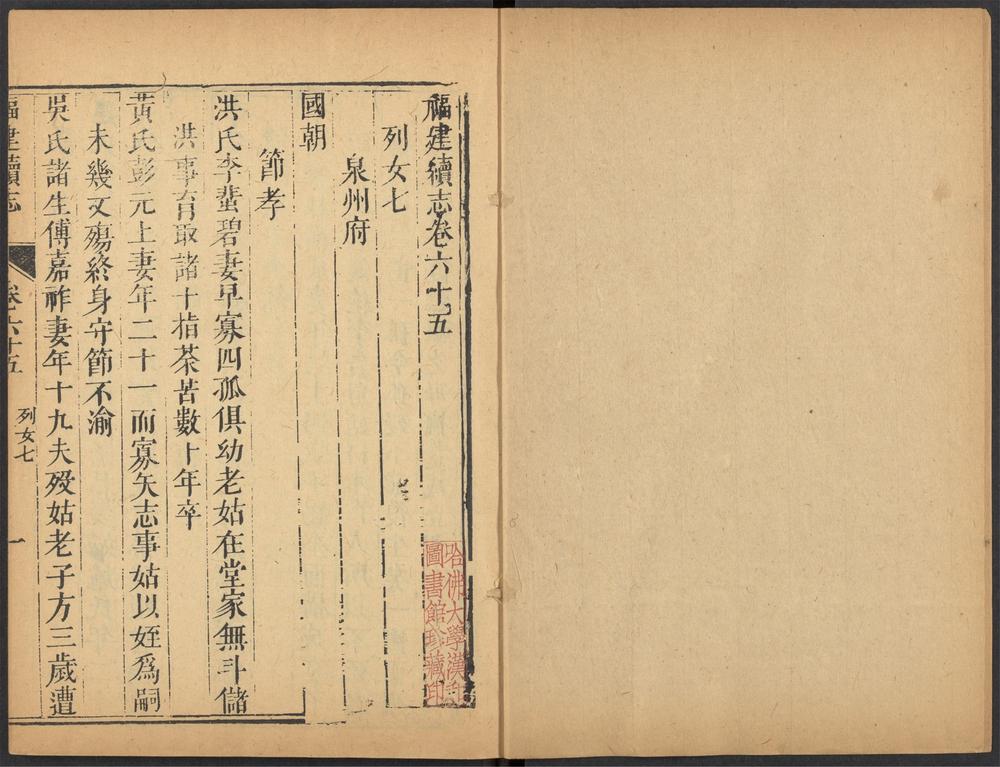 福建續志卷六十五
列女七
泉州府
國朝
節孝
洪氏李蜚碧妻早寡四孤俱幼老姑在堂家無斗儲
洪事育取諸十指荼苦數十年卒
黃氏彭元上妻年二十一而寡矢志事姑以姪爲嗣
未幾又殤終身守節不渝
吳氏諸生傅嘉祚妻年十九夫歿姑老子方三歲遭
福建續志 卷六十五 列女七 一
哈佛大學漢和
圖書館珍藏印